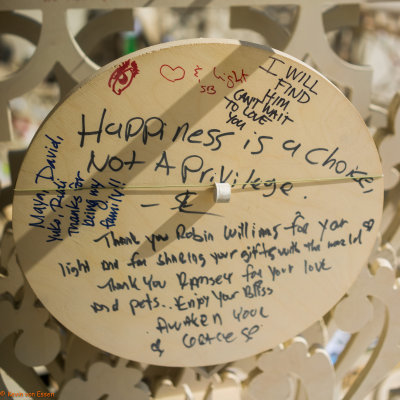 ♡ & light
SB
I WILL
FIND
HIM
CAN'T WAIT
TO LOVE
YOU
Happiness is a choice,
Not A Privilege.
Maya, David,
Yuki, Ruki
thanks for
being my
family!!
Thank you Robin Williams for your
light and for sharing your gifts with the world
Thank you Ramsey for your love
and pets.. Enjoy Your Bliss
Awaken your
Graces
© Marie van Essen